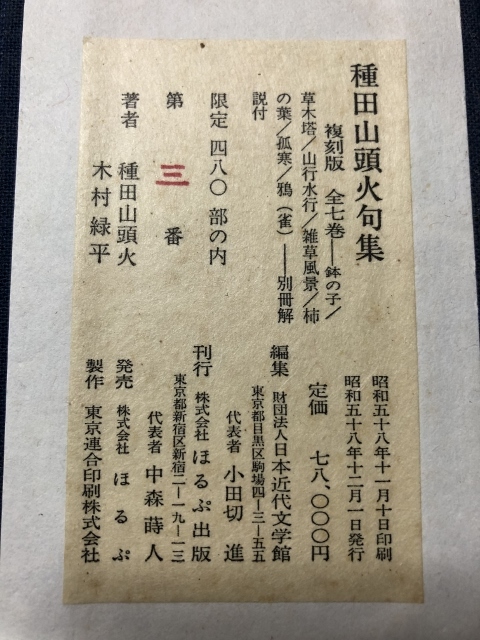 種田山頭火句集
複刻版 全七巻――鉢の子/
草木塔/山行水行/雑草風景/柿
の葉/孤寒/鴉(雀)――別冊解
説付
限定 四八〇 部の内
第 三 番
著者 種田山頭火
木村緑平
昭和五十八年十一月十日印刷
昭和五十八年十二月一日発行
定価 七八、〇〇〇円
編集 財団法人日本近代文学館
東京都目黒区駒場四―三―五五
代表者 小田切 進
刊行 株式会社 ほるぷ出版
東京都新宿区新宿二―一九―一三
代表者 中森蒔人
発売 株式会社 ほるぷ
製作 東京連合印刷株式会社